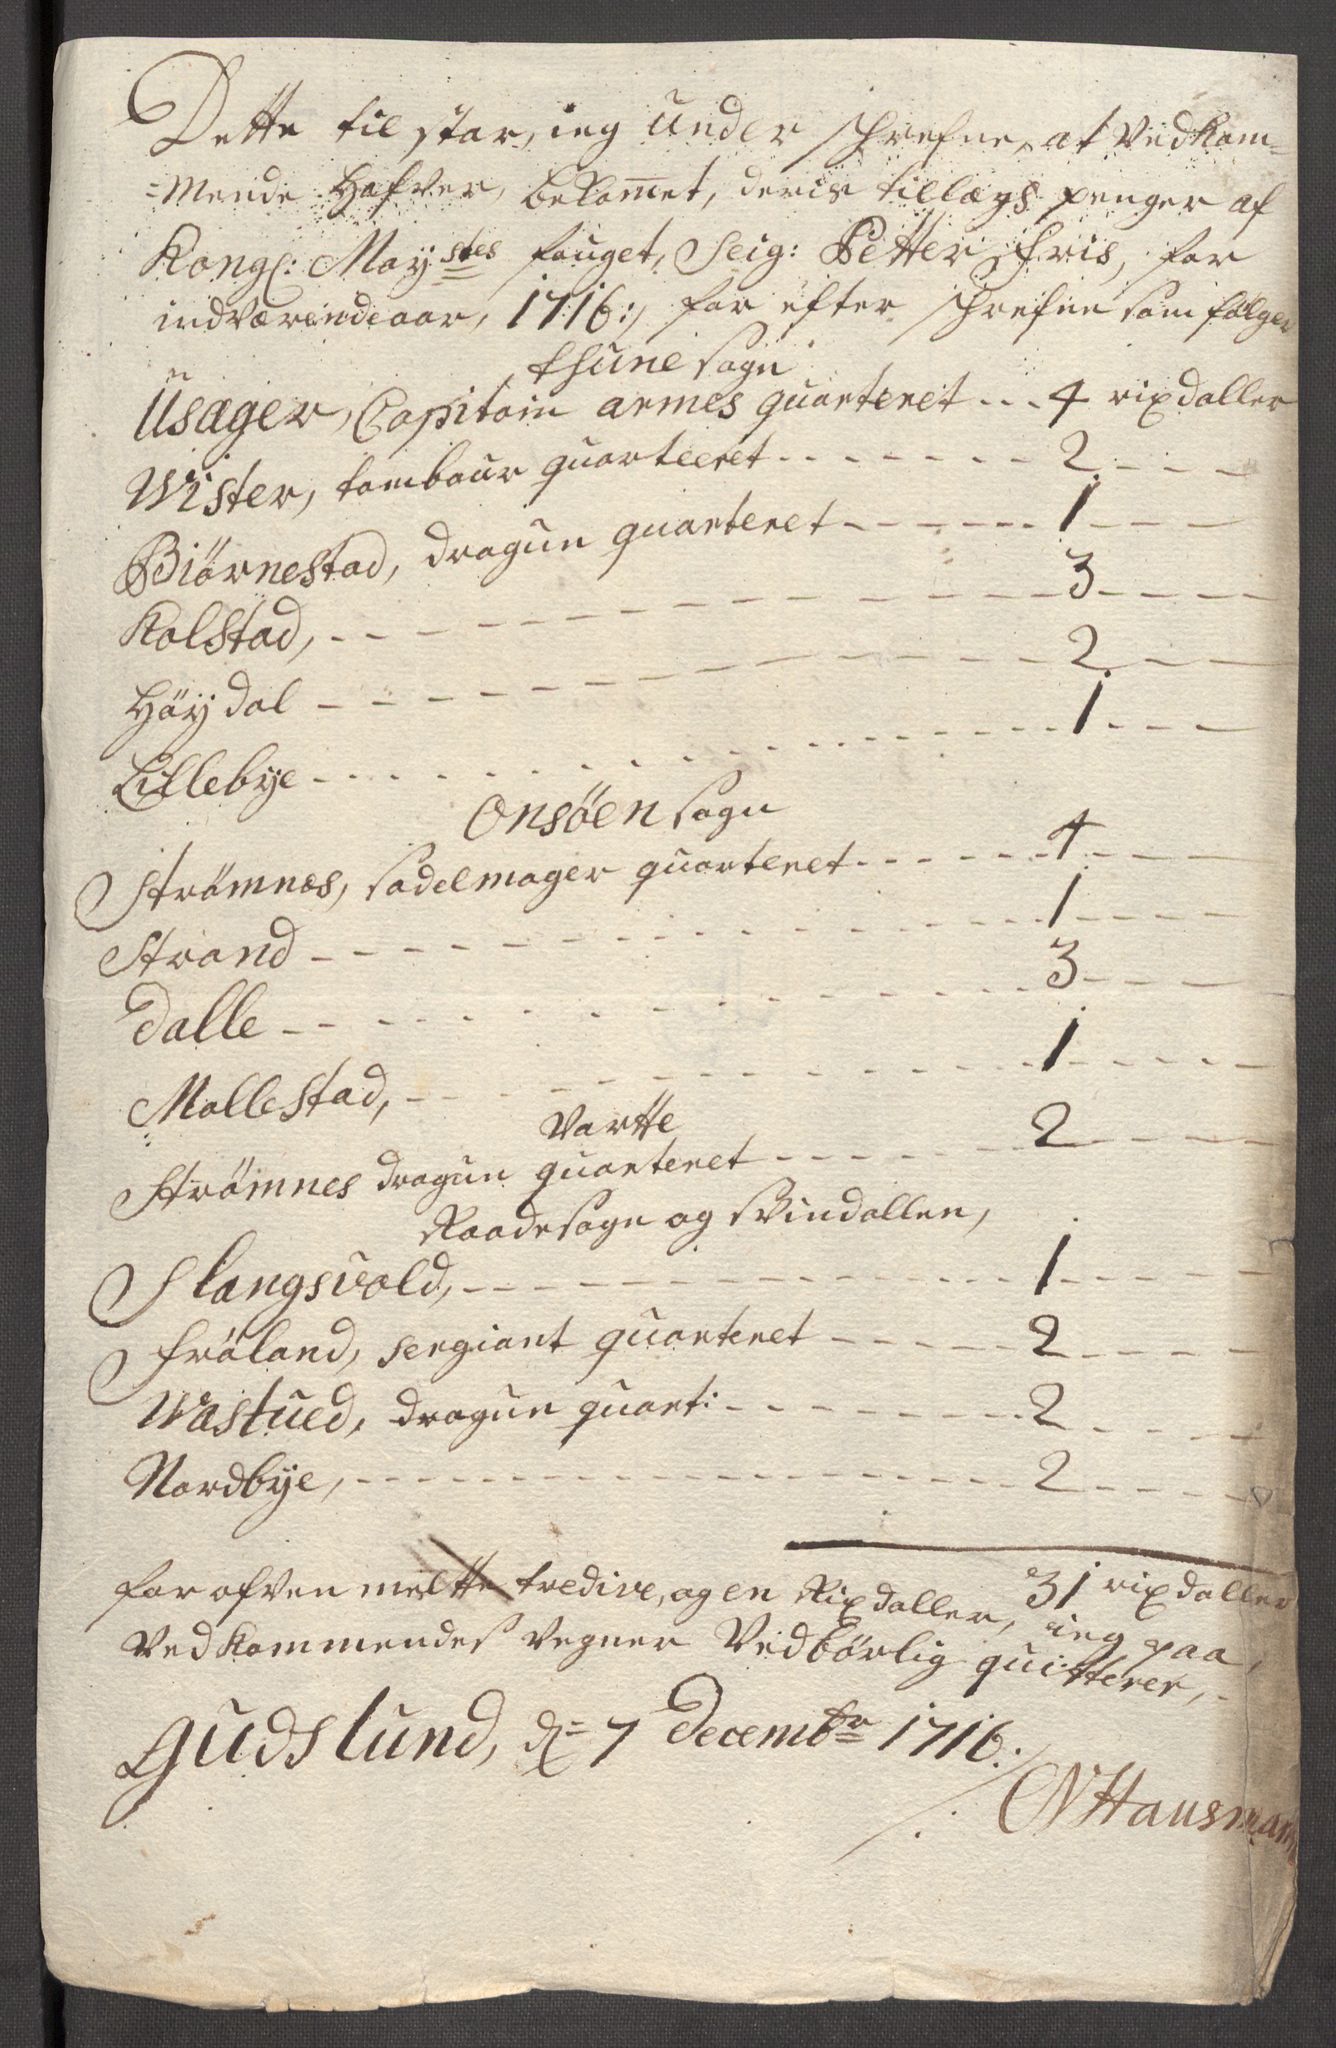 Dette til star, ieg under schrefne, at Vedkom-
=mende hafver, bekom̅et, deris tillægs penger af
Kongl: Maystes fouget, Seig: Petter Friis, for
indværendeaar, 1716:, for efter schrefne som følger
thune sogn
Üsager, Capitain armes quarteret ... 4 rixdaller
Wister, tambour quarteeret - - - 2 - - -
Biörnestad, dragun quarteret - - - 1 - - -
Kolstad, - - - 3 - - -
Höydal - - - 2 - - -
Lillebye - - - 1 - - -
Onsöen sogn
Strömnes, sadelmager quarteret - - - 4 - - -
Strand - - - 1 - - -
Dalle - - - 3 - - -
Mallestad, - - - 1 - - -
Vartte
Strömnes dragun quarteret - - - 2 - - -
Raadesogn og Svindallen,
Slangsvold, - - - 1 - - -
Fröland, sergiant quarteret - - - 2 - - -
Wastued, dragun quart: - - - 2 - - -
Nordbye, - - - 2 - - -
31 rixdaller
for ofven meltte tredive, og en Rixdaller, ieg paa,
Vedkommendes vegner Vedbörlig quitterer,
Gudslund, d= 7 Decembr 1716.
Hausman